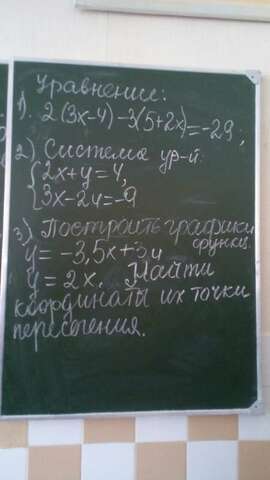 Уравнение:
1). 2(3x-4)-3(5+2x)=-29;
2) Система ур-й:
{2x+y=4,
3x-2y=-9
3) Построить графики
функц.
y=-3,5x+3 и
y=2x. Найти
координаты их точки
пересечения.